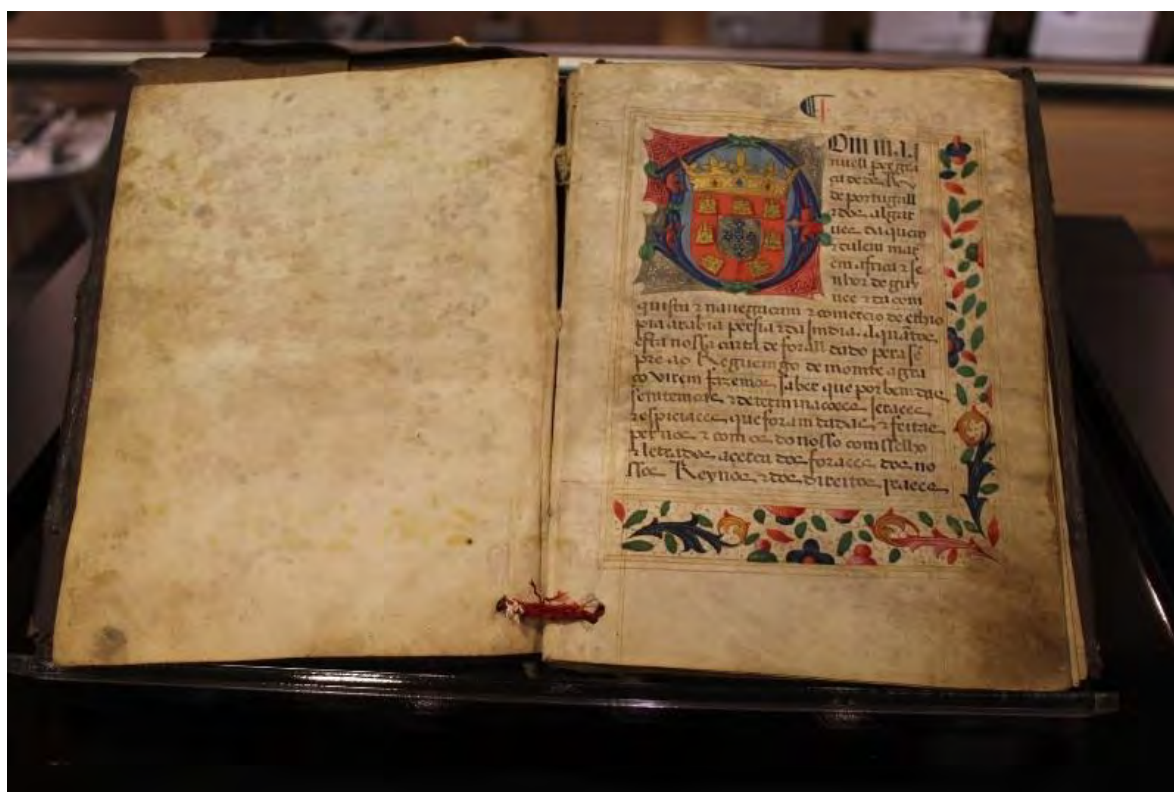 Om ma
nuell per gra
ça de ds Rey
de portugall
z dos algar
ves daquem
z dalem mar
em africa z se
nhor de guy
nee z da com
quista z nauegaçam z comercio de ethio
pia arabia persia z da India. A quātos
esta nossa carta de forall dado pera sē
pre ao Regueingo de momte agra
ço virem fazemos saber que por bem das
sentemças z determinaçõees jeraees
z espiciaees que foram dadas z feitas
per nos z com os do nosso comsselho
z letrados açerca dos foraees dos no
ssos Reynos z dos direitos rraees